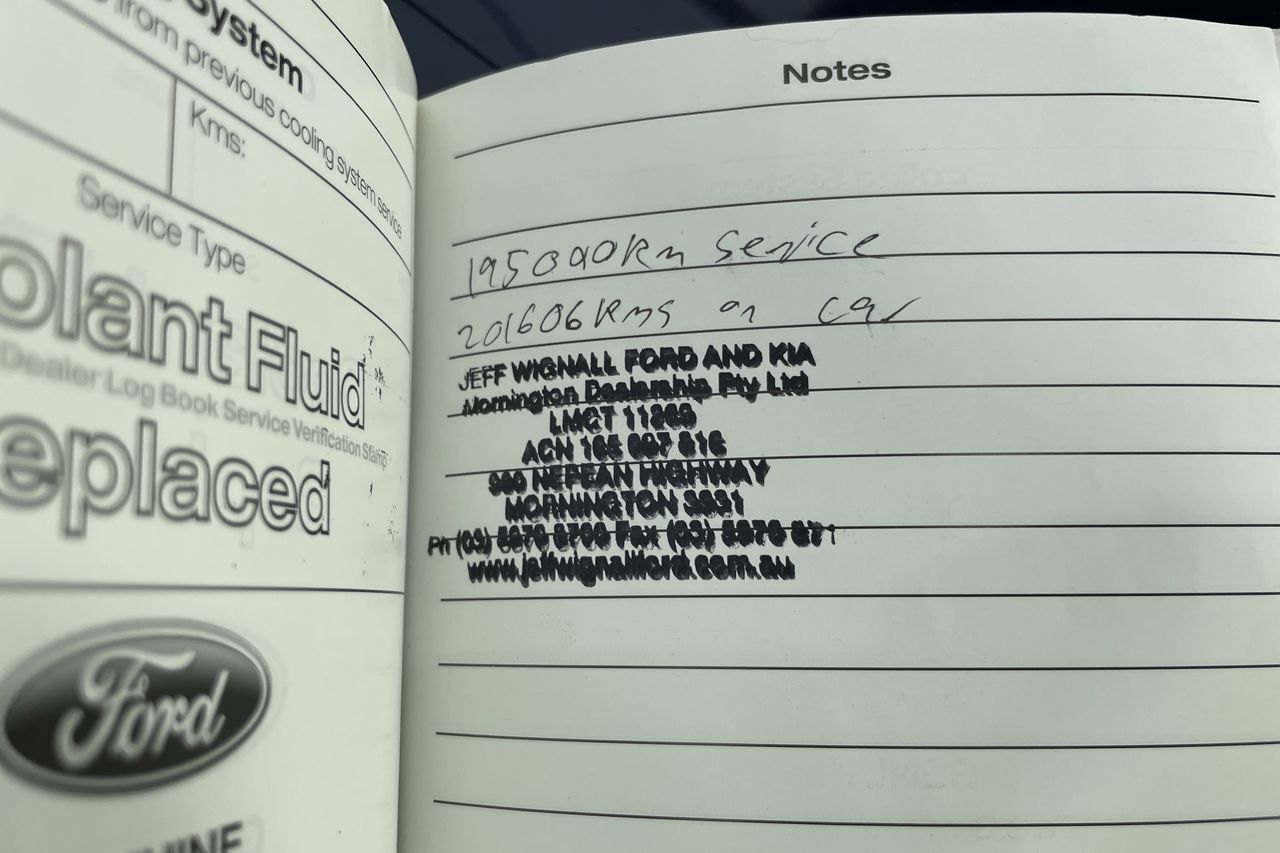 System
from previous cooling system service
Kms:
Service Type
olant Fluid
Dealer Log Book Service Verification Stamp
eplaced
Ford
Notes
195000km Service
201606kms on car
JEFF WIGNALL FORD AND KIA
Mornington Dealership Pty Ltd
LMCT
ACN
NEPEAN HIGHWAY
MORNINGTON 3931
Ph (03) Fax (03)
www.jeffwignallford.com.au